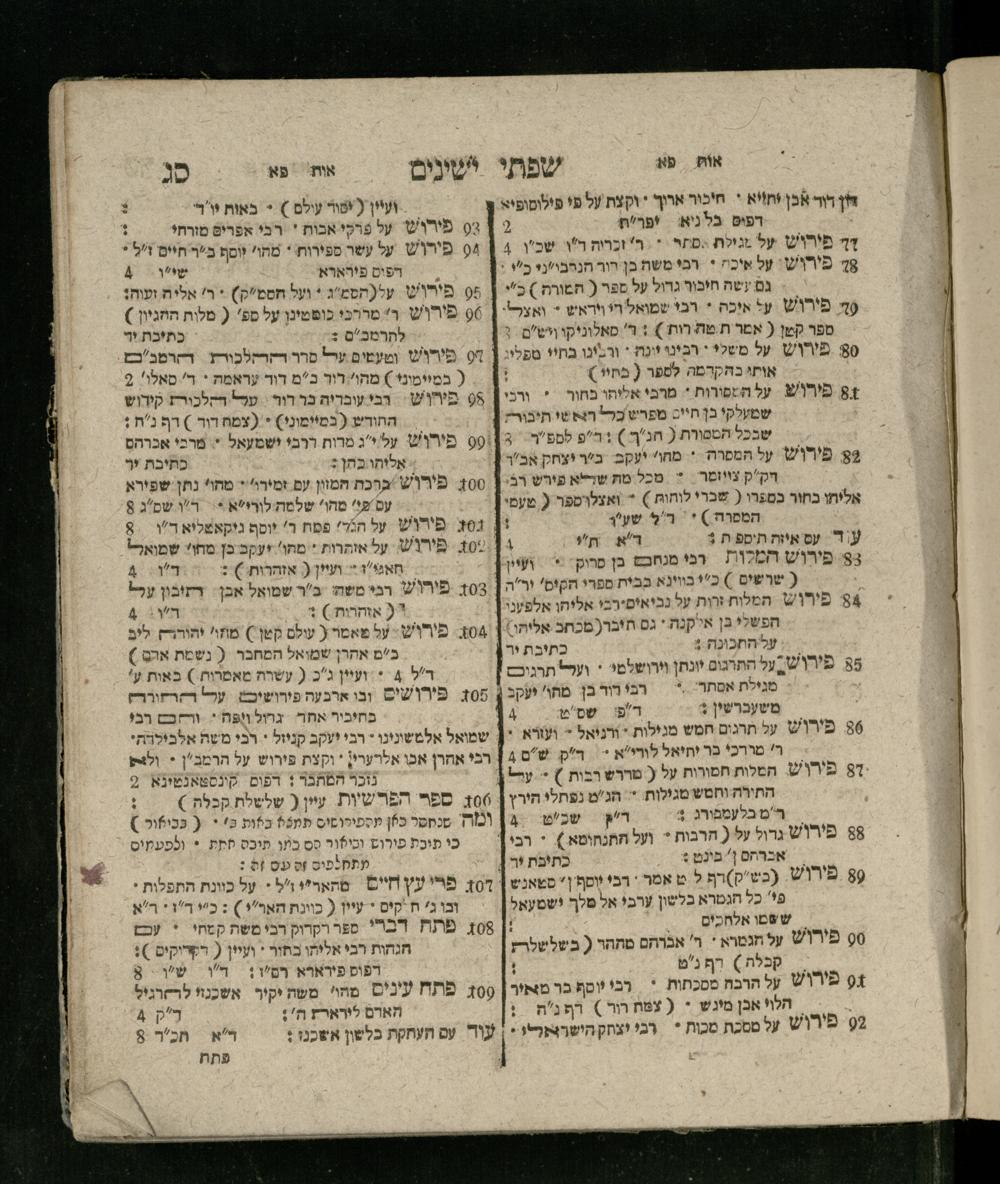 אות פא שפתי ישינים אות פא סג
דון דוד אבן יחייא · חיבור ארוך · וקצת על פי פילוסופיא
דפוס בלוניא יפר״ח 2
77 פירוש על מגילת סתר · ר' זכריה ד״ו שכ״ו 4
78 פירוש על איכה · רבי משה בן דוד הנרבו״ני כ״י ·
גם עשה חיבור גדול על ספר ( המורה ) כ״י
79 פירוש על איכה · רבי שמואל די וידאש · ואצלו
ספר קטן ( אמרתו טהרות ) : ד' סאלוניקו ויש״ם 8
80 פירוש על משלי · רבינו יונה · ורבינו בחיי מפליג
אותו בהקדמה לספר ( בחיי ) :
81 פירוש על המסורות · מרבי אליהו בחור · ורבי
שמעלקי בן חיים מפרש כל ראשי תיבות
שבכל המסורת ( תנ״ך ) : ד״פ לספ״ר 8
82 פירוש על המסרה · מהו' יעקב ב״ר יצחק אב״ד
דק״ק צייזמר · מכל מה שלא פירש רבי
אליהו בחור בספרו ( שברי לוחות ) · ואצלו ספר ( טעמי
המסרה ) · ד״ל שע״ו :
עוד עם איזה תוספות : ד״א ת״י 4
83 פירוש המלות רבי מנחם בן סרוק · ועיין
( שרשים ) כ״י בווינא בבית ספרי הקיס' יר״ה
84 פירוש המלות זרות על נביאים · רבי אליהו אלפעני
הפשלי בן אלקנה · גם חיבר ( מכתב אליהו )
על התכונה : כתיבת יד
85 פירוש על התרגום יונתן וירושלמי · ועל תרגום
מגילת אסתר · רבי דוד בן מהו' יעקב
משעברשין : ד״פ שס״ט 4
86 פירוש על תרגום חמש מגילות · ודניאל · ועזרא ·
ר' מרדכי בר יחיאל לורי״א · ד״ק ש״ם 4
87 פירוש המלות חמורות על ( מדרש רבות ) · על
התורה וחמש מגילות · הג״מ נפתלי הירץ
ר״מ בלעמפורג : ד״ק שכ״ט 4
88 פירוש גדול על ( הרבות · ועל התנחומא ) · רבי
אברהם ן' בינט : כתיבת יד
89 פירוש ( בש״ק ) דף ל״ט אמר · רבי יוסף ן' סטאנש
פי' כל הגמרא בלשון ערבי אל מלך ישמעאל
ששמו אלחכים :
90 פירוש על הגמרא · ר' אברהם מההר ( בשלשלת
קבלה ) דף נ״ט :
91 פירוש על הרבה מסכתות · רבי יוסף בר מאיר
הלוי אבן מיגש · ( צמח דוד ) דף נ״ח :
92 פירוש על מסכת מכות · רבי יצחק הישראלי ·
ועיין ( יסוד עולם ) · באות יו״ד :
93 פירוש על פרקי אבות · רבי אפרים מזרחי :
94 פירוש על עשר ספירות · מהו' יוסף ב״ר חיים ז״ל ·
דפוס פירארא שי״ו 4
95 פירוש על ( הסמ״ג · ועל הסמ״ק ) · ר' אליה זעוה :
96 פירוש ר' מרדכי כומטינו על ספ' ( מלות ההגיון )
להרמב״ם : כתיבת יד
97 פירוש וטעמים על סדר ההלכות הרמב״ם
( במיימוני ) מהו' דוד ב״מ דוד עראמה · ד' סאלו' 2
98 פירוש רבי עובדיה בר דוד על הלכות קידוש
החודש ( במיימוני ) · ( צמח דוד ) דף נ״ח :
99 פירוש על י״ג מדות דרבי ישמעאל · מרבי אברהם
אליהו כהן : כתיבת יד
100. פירוש ברכת המזון עם זמירו' · מהו' נתן שפירא
עם פי' מהו' שלמה לורי״א · ד״ו שס״ג 8
101. פירוש על הגד' פסח ר' יוסף גיקאטליא ד״ו 8
102. פירוש על אזהרות · מהו' יעקב בן מהו' שמואל
חאגי״ז · ועיין ( אזהרות ) : ד״ו 4
103. פירוש רבי משה ב״ר שמואל אבן תיבון על
( אזהרות ) : ד״ו 4
104. פירוש על מאמר ( עולם קטן ) מהו' יהודה ליב
ב״מ אהרן שמואל המחבר ( נשמת אדם )
ד״ל 4 · ועיין ג״כ ( עשרה מאמרות ) באות ע'
105. פירושים ובו ארבעה פירושים על התורה
בחיבור אחד גדול ויפה · והם רבי
שמואל אלמושנינו · רבי יעקב קניזל · רבי משה אלבילדה ·
רבי אהרן אבו אלרערי · וקצת פירוש על הרמב״ן · ולא
נזכר המחבר : דפוס קונסטאנטינא 2
106. ספר הפרשיות עיין ( שלשלת קבלה ) :
ומה שנחסר כאן מהפירושים תמצא באות ב' · ( בביאור )
כי תיבת פירוש וביאור הם כמו תיבה אחת · ולפעמים
מתחלפים זה עם זה :
107. פרי עץ חיים מהאר״י ז״ל · על כוונת התפלות ·
ובו ג' חלקים · עיין ( כוונת האר״י ) : כ״י ד״ז · ד״א
108. פתח דברי ספר דקדוק רבי משה קמחי · עם
הגהות רבי אליהו בחור · ועיין ( דקדוקים ) :
דפוס פירארא רס״ז : ד״ו ש״ו 8
109. פתח עינים מהו' משה יקיר אשכנזי להרגיל
האדם ליראת ה' : ד״ק 4
עוד עם העתקת בלשון אשכנז : ד״א תכ״ד 8
פתח